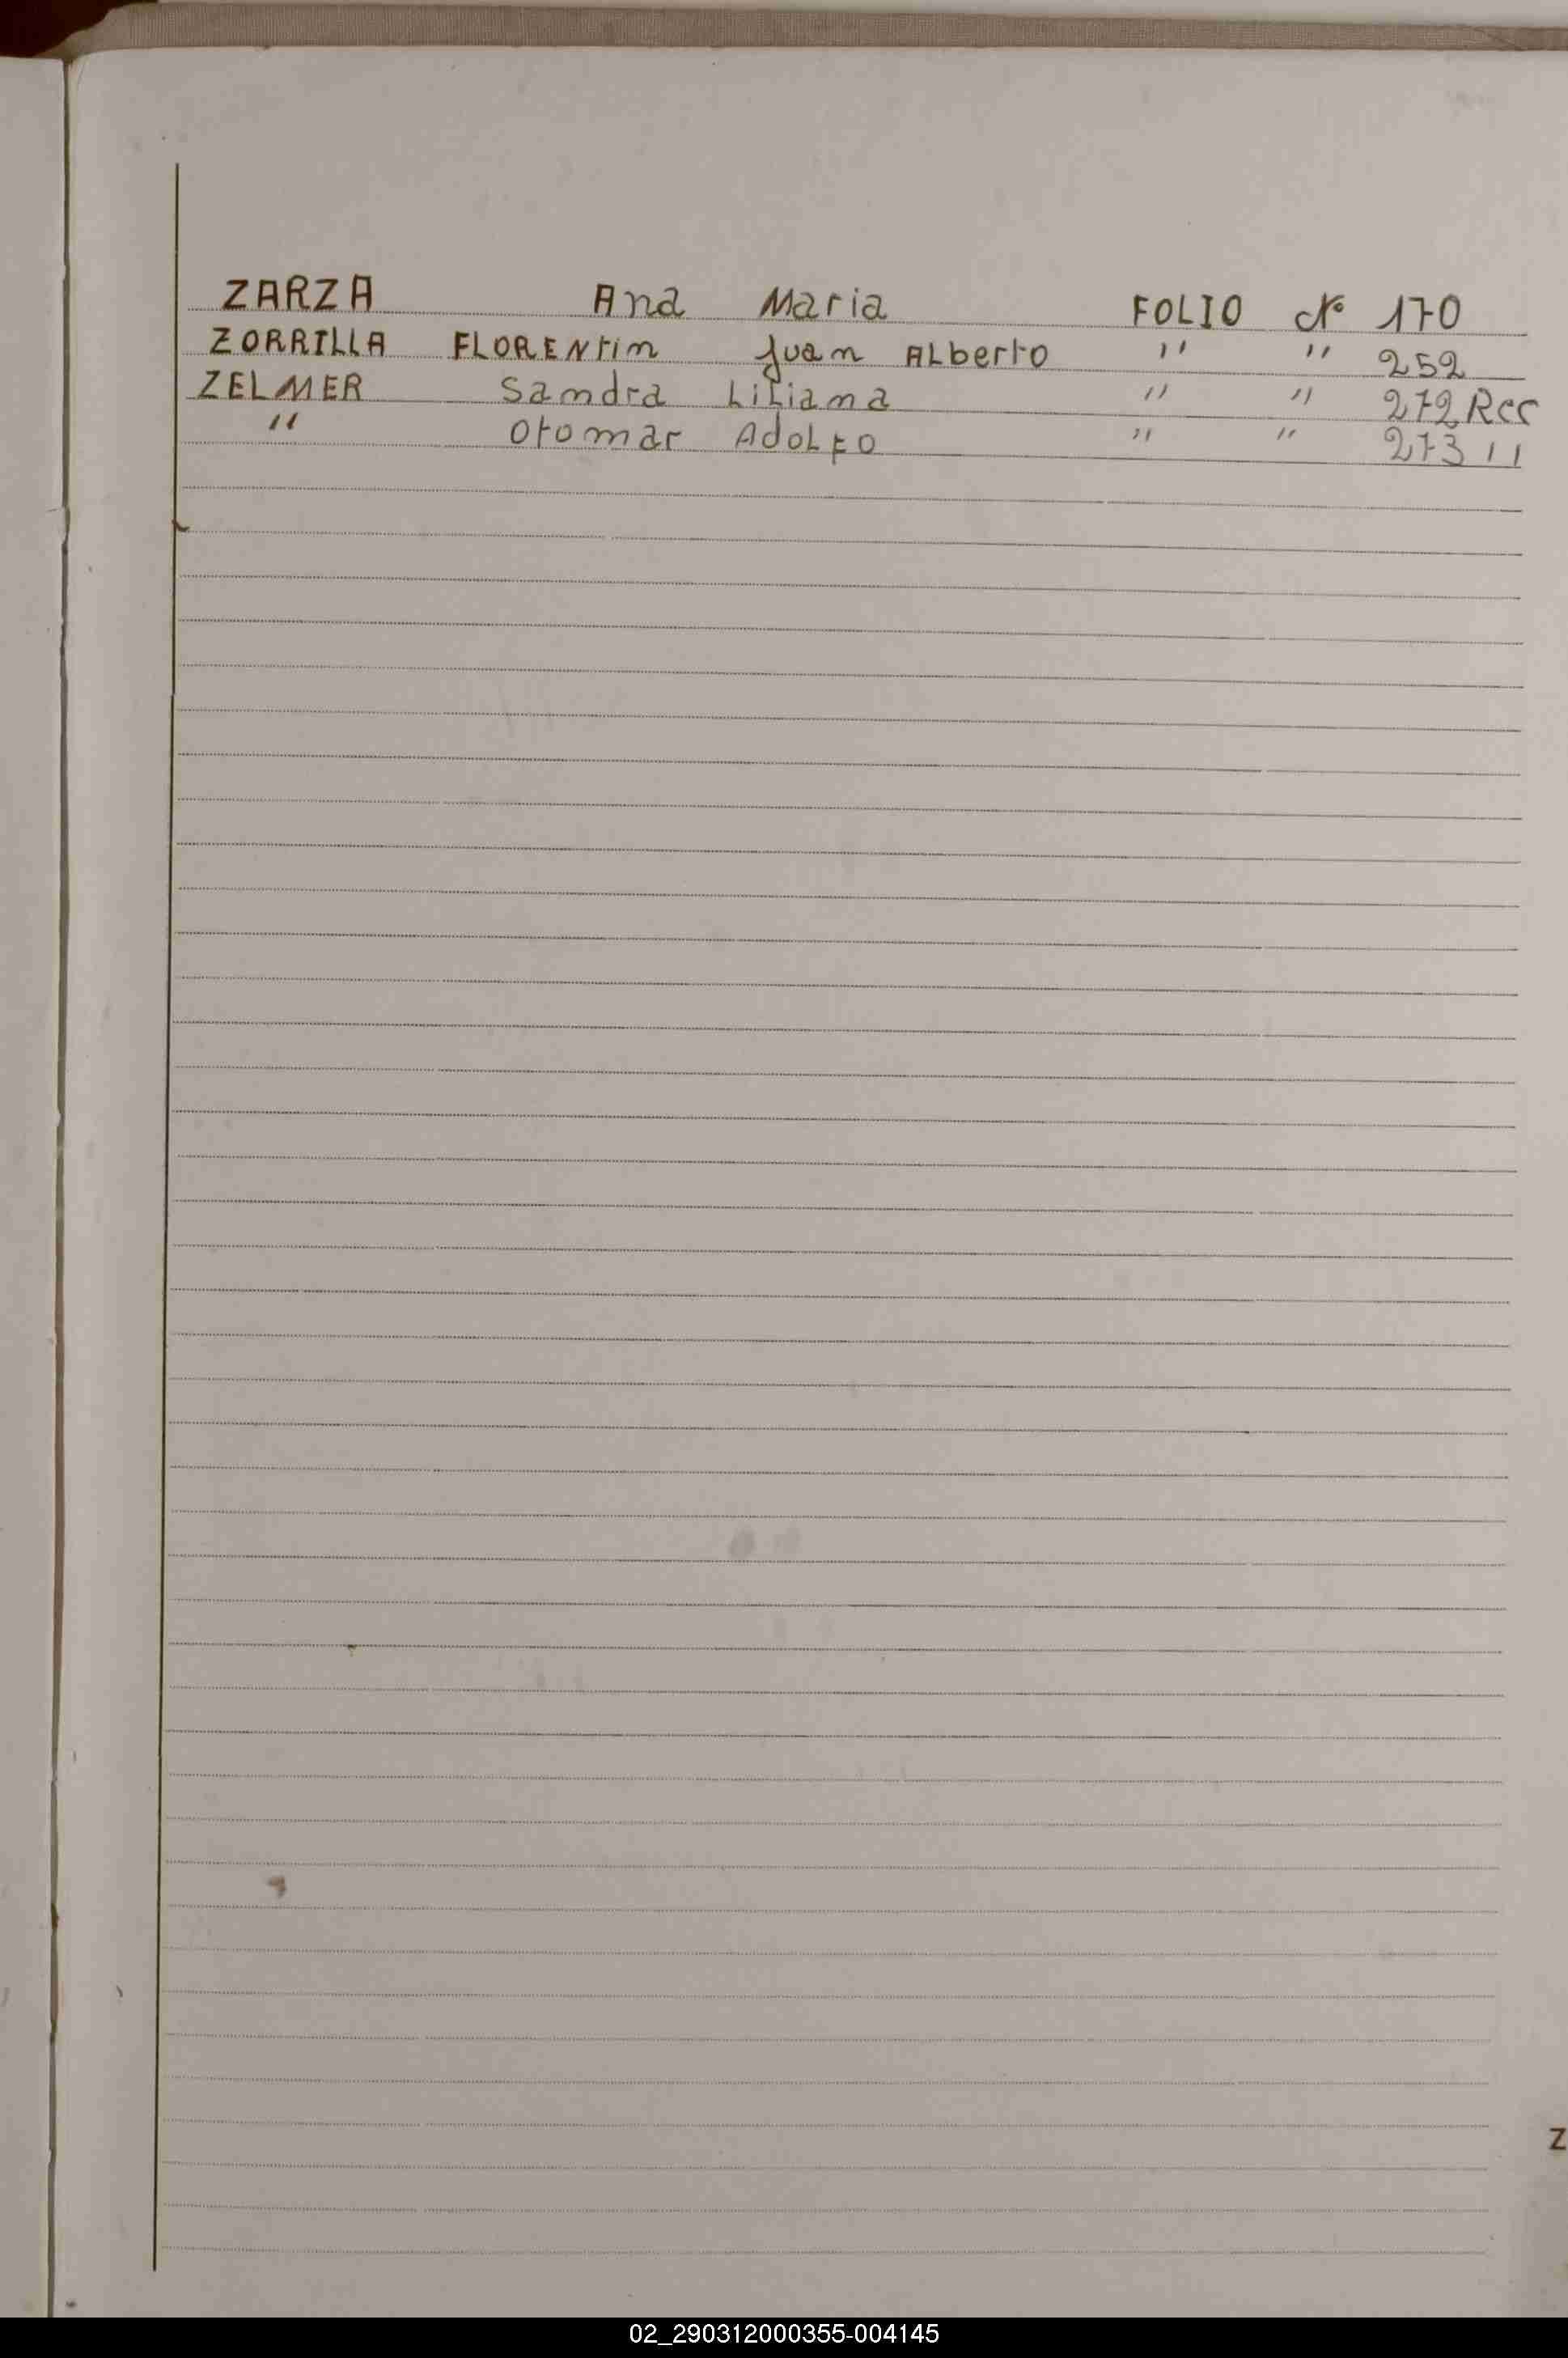 ZARZA Ana Maria FOLIO Nº 170
ZORRILLA FLORENtin Juan ALberto " " 252
ZELMER Sandra Liliana " " 272 Rec
" Otomar AdoLFO " " 273 "
Z
02_290312000355-004145